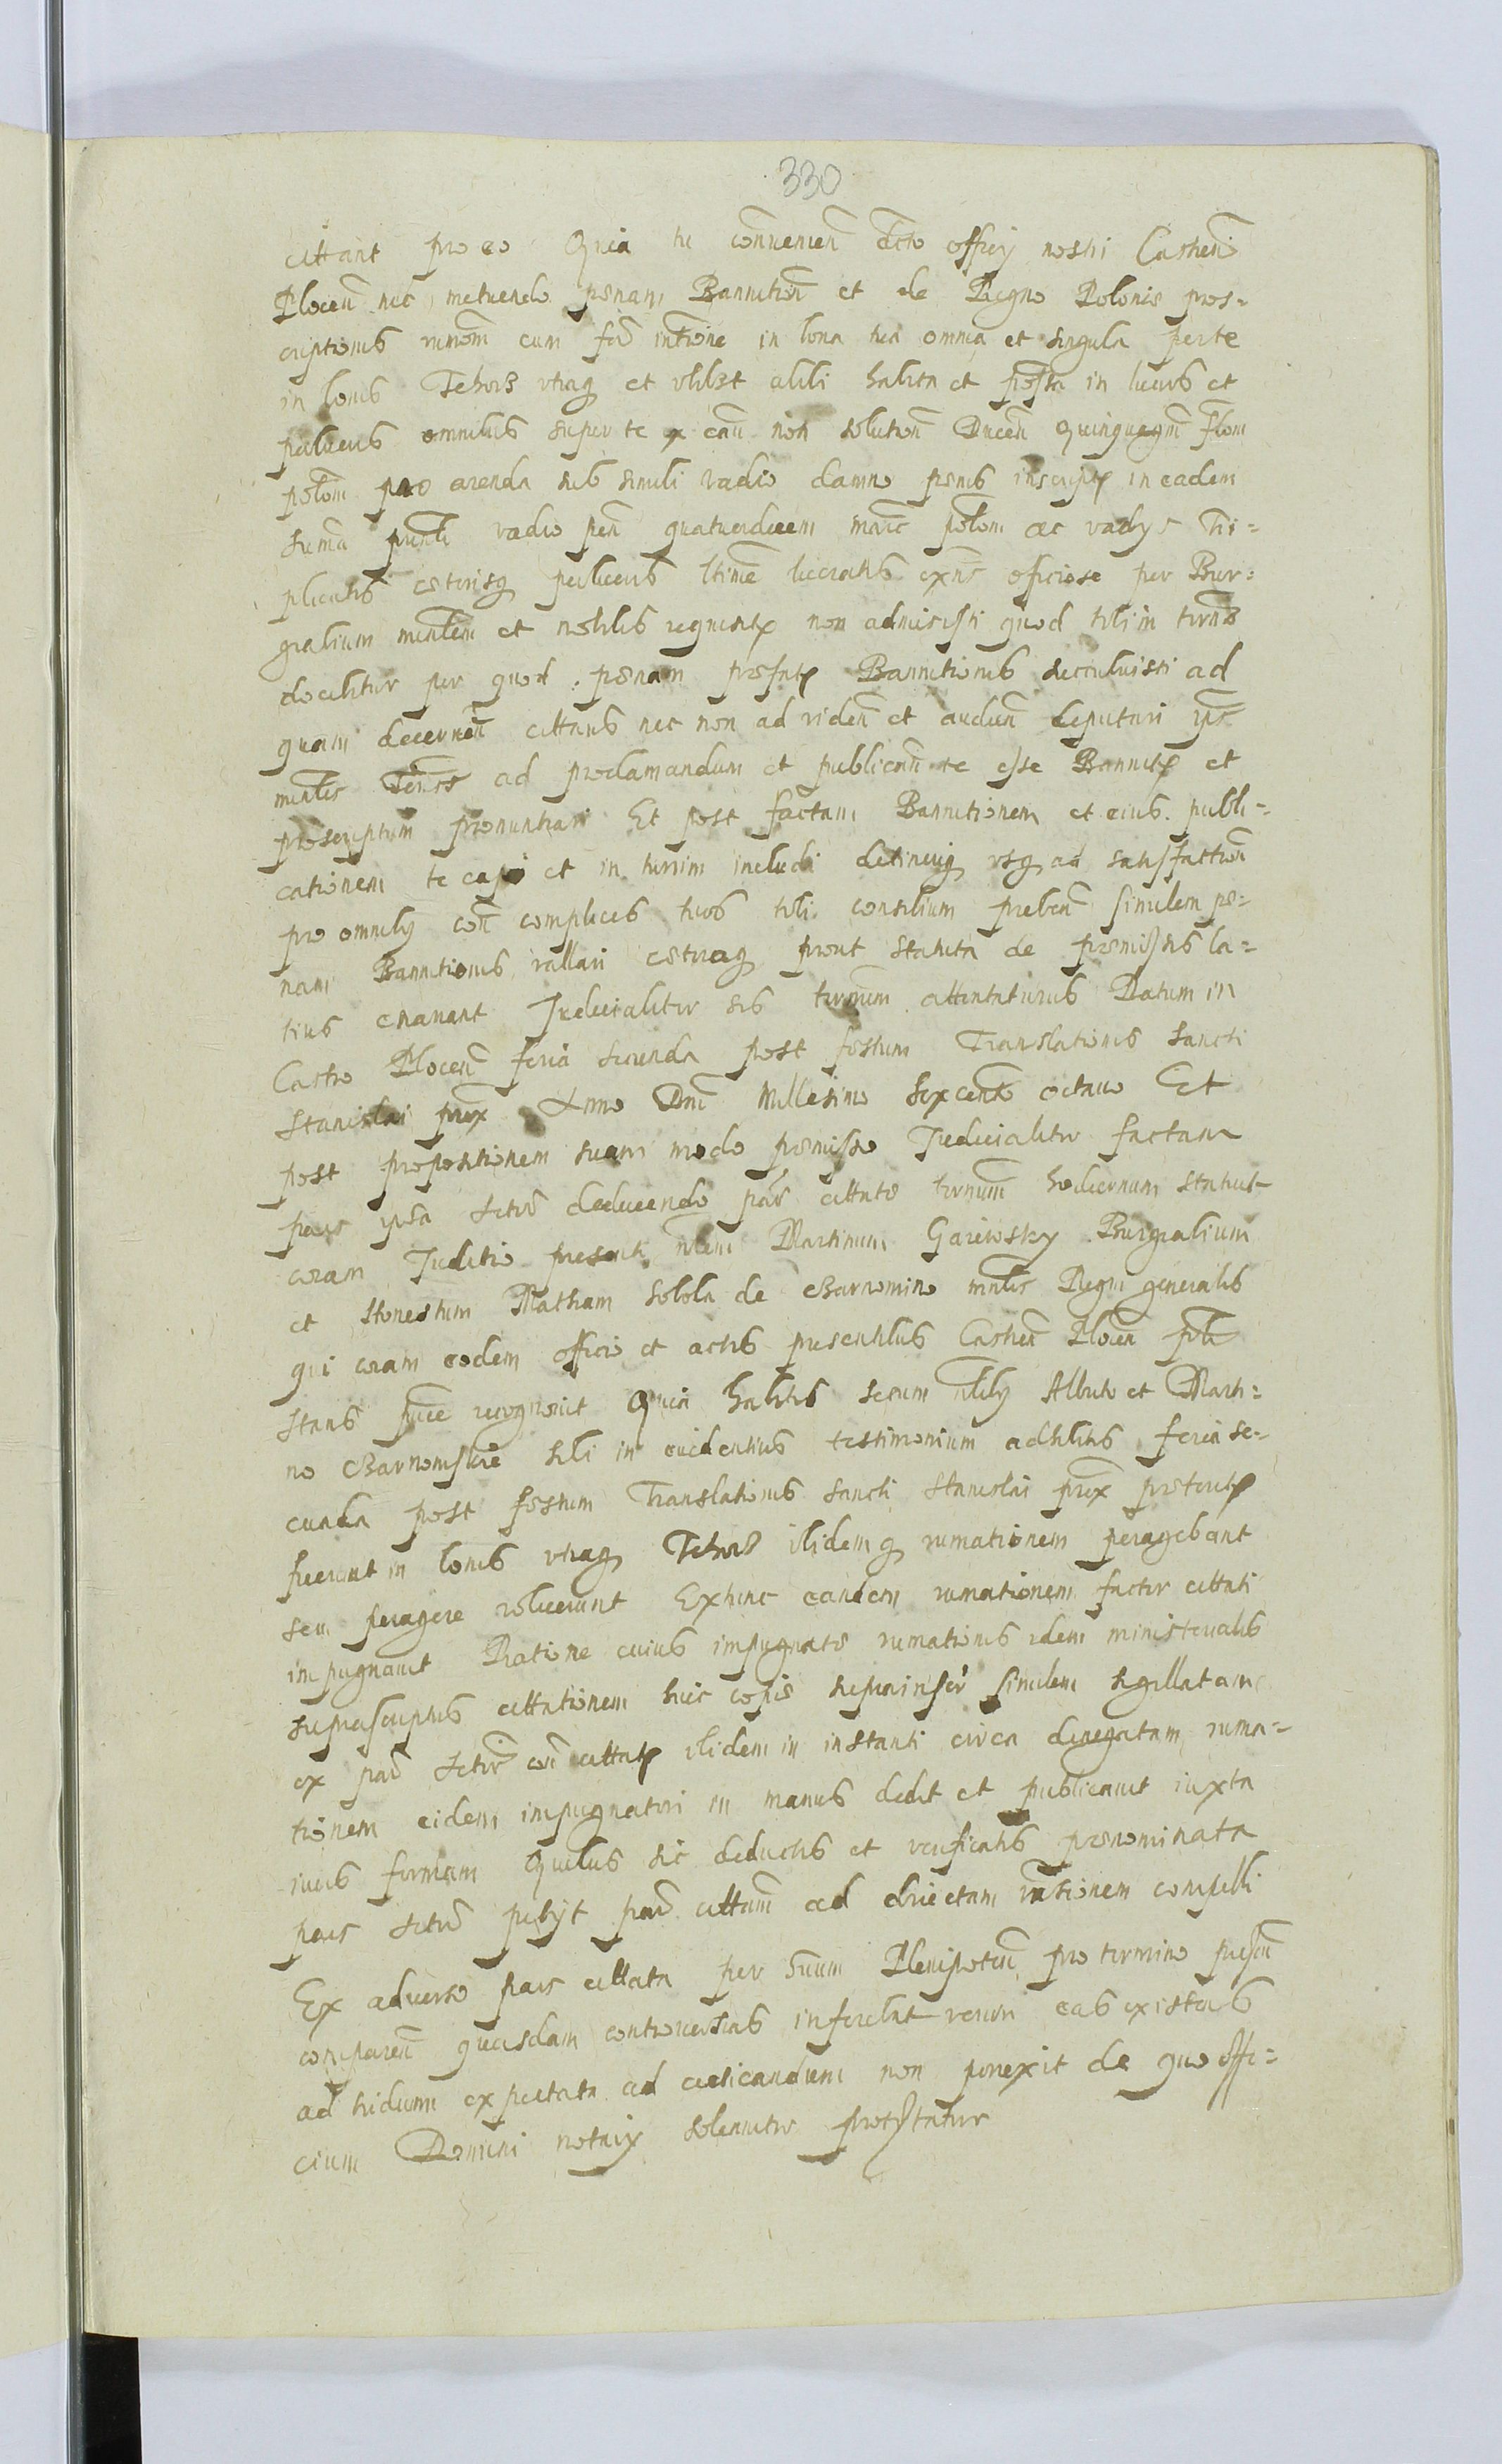 330
cittant pro eo Quia tu conveniен dcto officij nostri Castren
Plocen nec metuendo penam Bannition et de Regno Polonie pros-
criptionis rumom cum fri introne in bona tua omnia et singula per te
in bonis Tchorz utraq et ubilibet alibi habita et possta in lucris et
pulucris omnibus super te ex cau non solution Ducen Quinquagm flom
polom pro arenda sub simili vadio damno penis inscript in eadem
suma prinli vadio pen quatuordecim marc polom ac vadys Tri-
plicatis ceterisq pulucris ltime lucratis exns officiose per Bur-
grabium minlem et nobiles requisitx non admisisti quod tibi in termo
docebitur per quod penam prefatx Bannitionis succubuisti ad
quam decernen cittaris nec non ad viden et audien deputari yps
minlis ad proclamandum et publican te esse Bannitx et
proscriptum pronuntiari Et post factam Bannitionem et eius publi-
cationem te capi et in turrim includi detineriq usq ad satisfaction
pro omnibq con complices tuos tibi consilium preben similem pe-
nam Bannitionis vallari ceteraq prout statuta de premissis la-
tius emanant Judicialiter sis terminum attentaturus Datum in
Castro Plocen feria secunda post festum Translationis Sancti
Stanislai prox Anno Dni Millesimo Sexcento octauo Et
post propositionem suam modo premisso Judicialiter factam
pars ipsa Actor deducendo par cittate terminum hodiernum statuit
coram Juditio presenti nlem Martinum Gariewsky Burgrabium
et Honestum Mathiam Sobola de Czarnomino minlis Regni generalis
qui coram eodem officio et actis presentibus Castren Plocen plr
stans pure recognouit Quia habitis secum nbilibq Alberto et Marti-
no Czarnomskie sibi in euidentius testimonium adhibitis feria se-
cunda post festum Translationis Sancti Stanislai prox preteritx
fuerunt in bonis utraq Tchorz ibidemq rumationem peragebant
seu peragere voluerunt Exhinc eandem rumationem factor cittati
impugnauit Ratione cuius impugnate rumationis idem ministerialis
suprascriptus cittationem huic copie suprainser similem sigillatam
ex par Actor con cittatx ibidem in instanti circa denegatam ruma-
tionem eidem impugnatori in manus dedit et publicauit iuxta
iuris formam Quibus sic deductis et verificatis prenominata
pars Actor petijt par cittam ad directam rationem compelli
Ex aduerso pars cittata per suum Plenipoten pro termino presen
comparen quasdam controuersias inferebat verum eas existens
ad triduum expectata ad acticandum non porrexit de quo offi-
cium Domini notarij solenniter protestatur